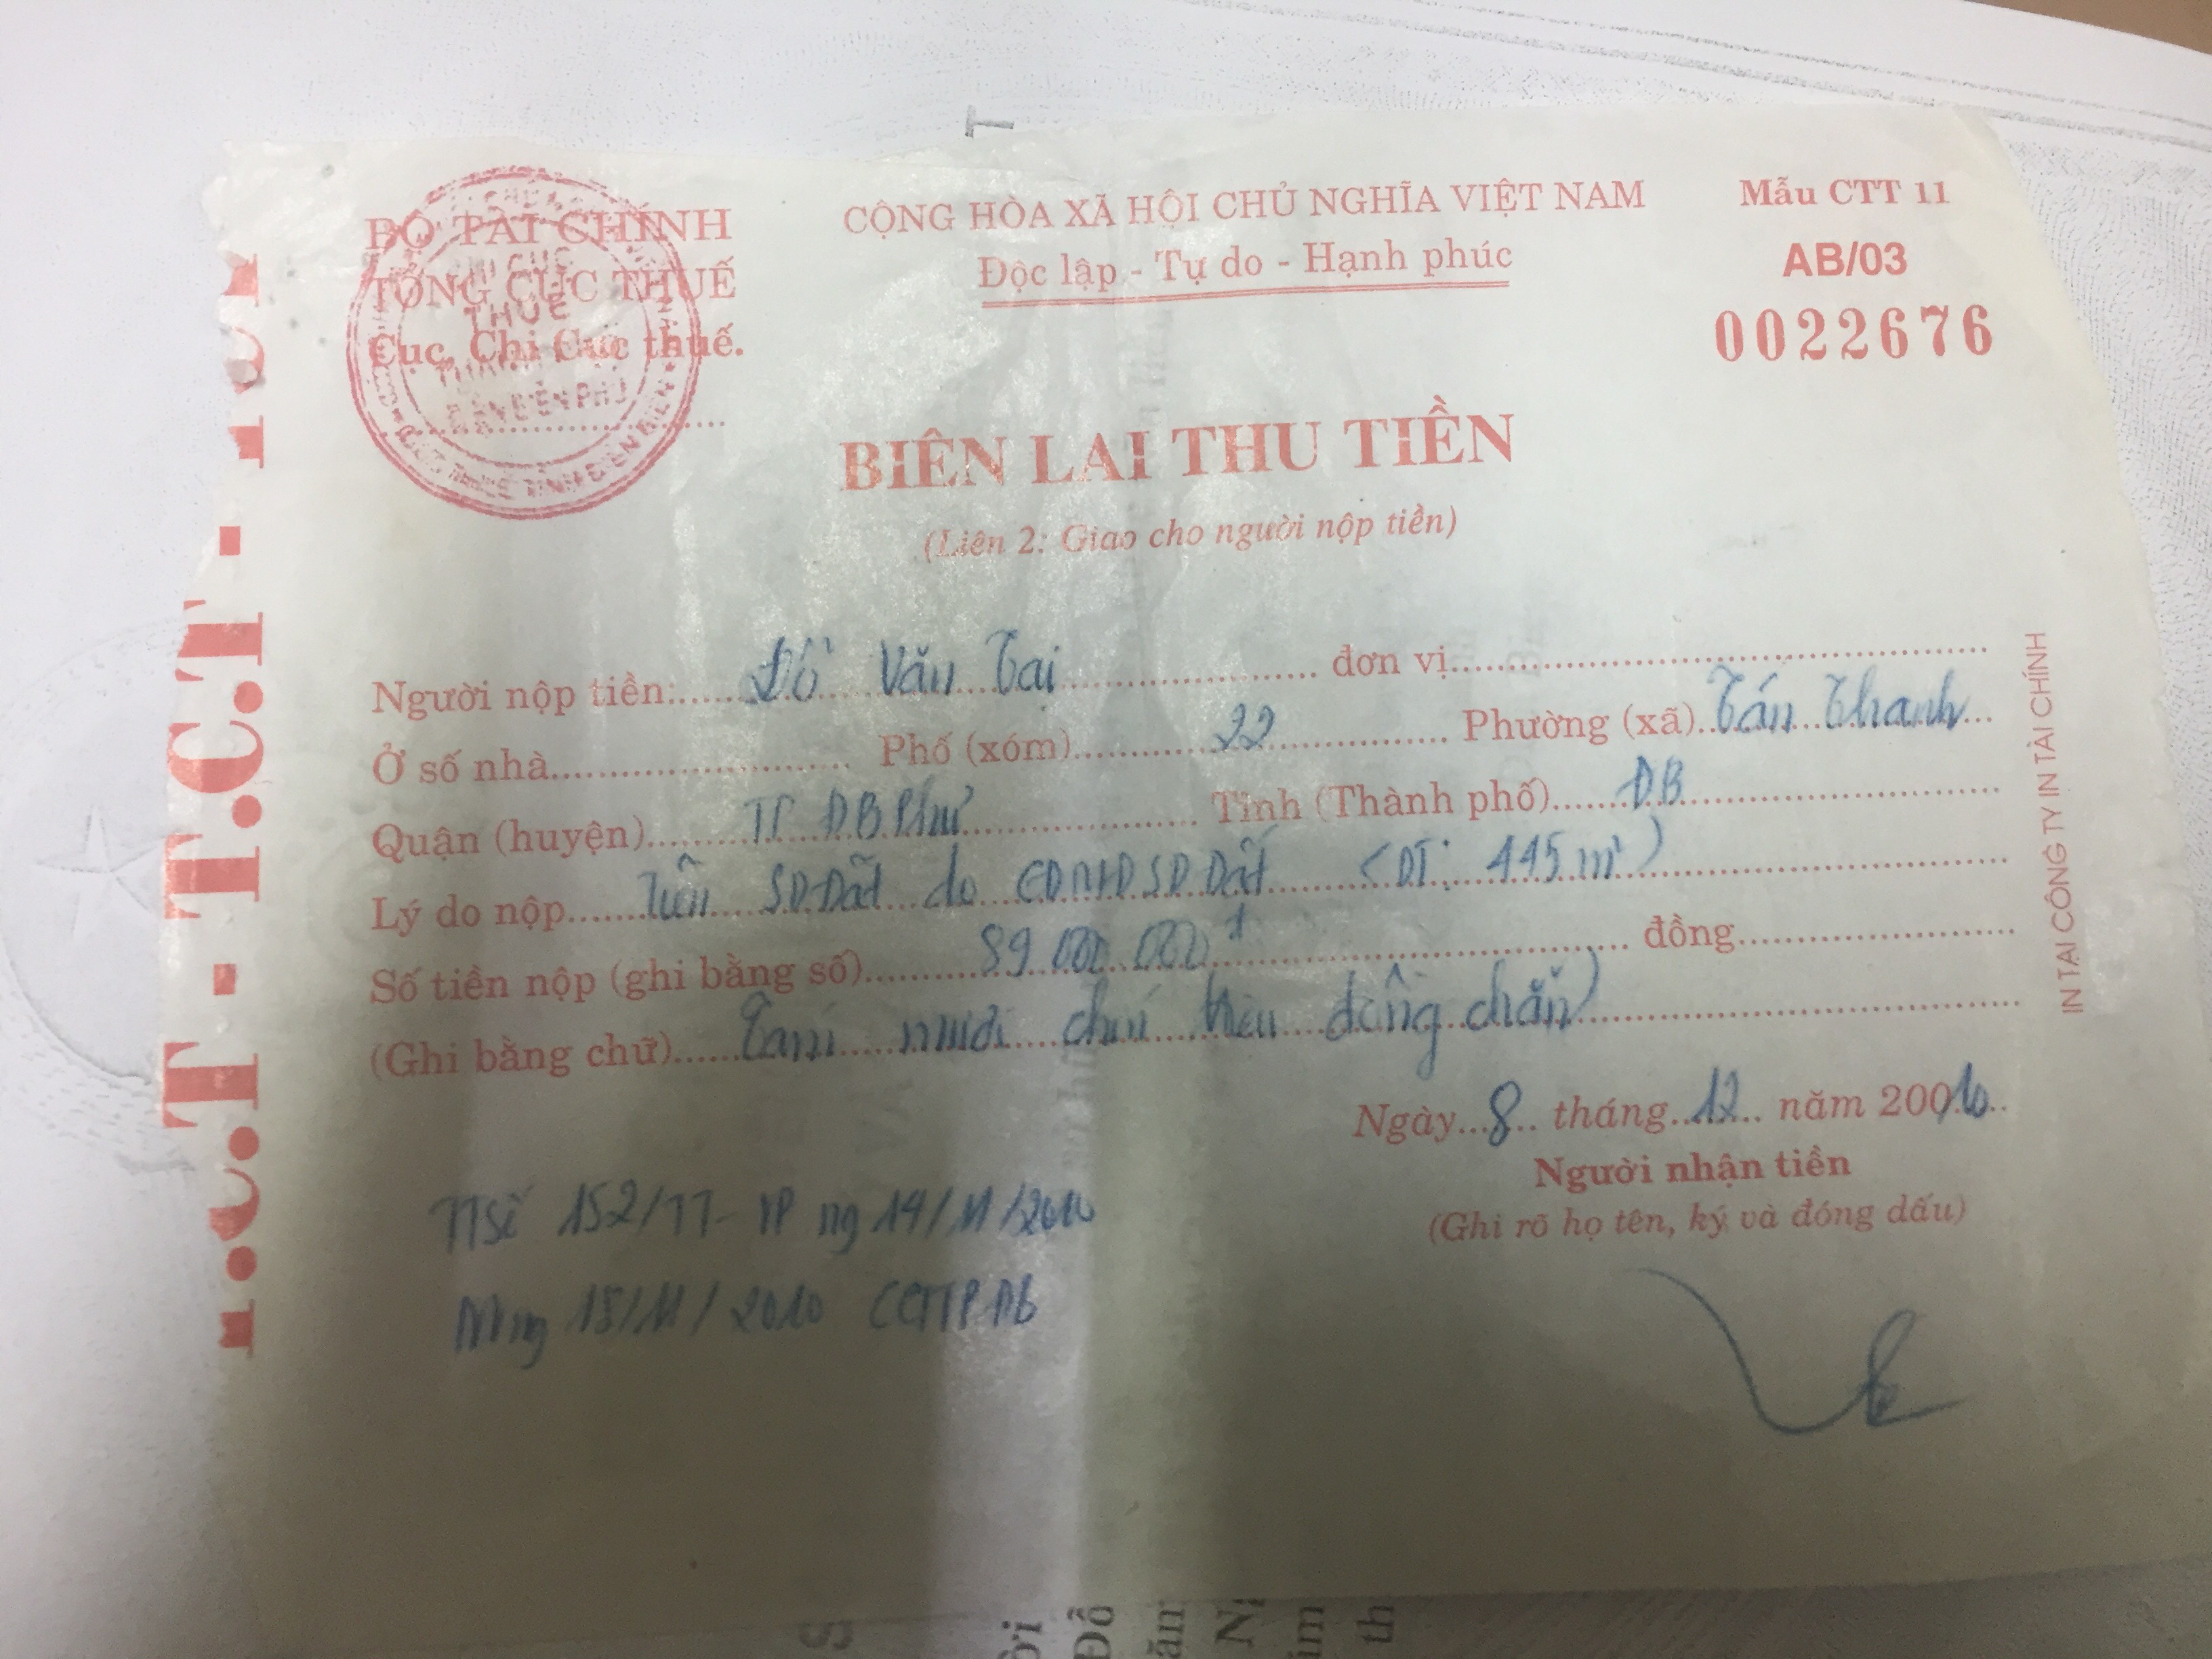 T
BỘ TÀI CHÍNH
TỔNG CỤC THUẾ
Cục, Chi Cục thuế.
CỘNG HÒA XÃ HỘI CHỦ NGHĨA VIỆT NAM
Độc lập - Tự do - Hạnh phúc
Mẫu CTT 11
AB/03
0022676
BIÊN LAI THU TIỀN
(Liên 2: Giao cho người nộp tiền)
Người nộp tiền: Đỗ Văn Tại đơn vị
Ở số nhà Phố (xóm) 22 Phường (xã) Tán Thanh
Quận (huyện) TP ĐB Phủ Tỉnh (Thành phố) ĐB
Lý do nộp Tiền SD Đất do CĐMĐ SD Đất (DT: 445 m²)
Số tiền nộp (ghi bằng số) 89.000.000đ đồng
(Ghi bằng chữ) Tám mươi chín triệu đồng chẵn)
Ngày 8 tháng 12 năm 2010
Người nhận tiền
(Ghi rõ họ tên, ký và đóng dấu)
152/TT- ng 14/11/2010
18/11/2010 CCTTPĐB
IN TẠI CÔNG TY IN TÀI CHÍNH
T.C.T - T.C.T
CHI CỤC
THUẾ
THÀNH PHỐ
ĐIỆN BIÊN PHỦ
S
Đỗ
th